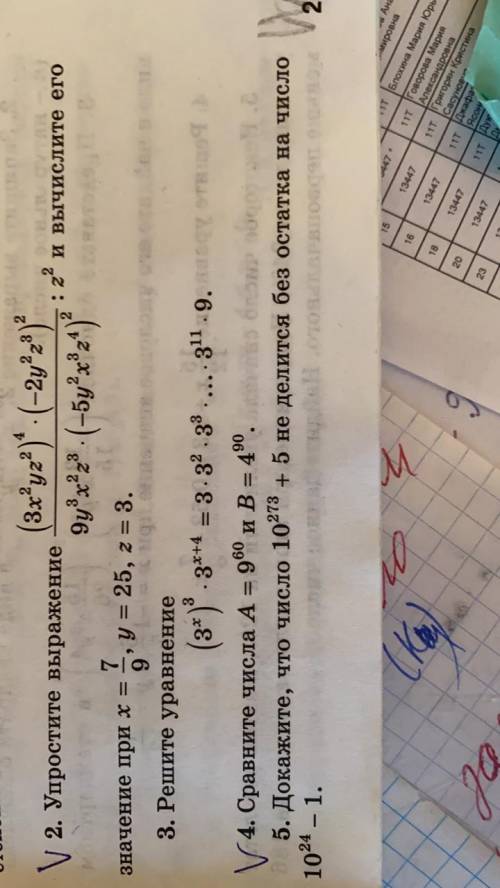 2. Упростите выражение (3x²yz²)⁴ · (−2y²z³)² / 9y³x²z³ · (−5y²x³z⁴)² : z² и вычислите его
значение при x = 7/9, y = 25, z = 3.
3. Решите уравнение
(3ˣ)³ · 3ˣ⁺⁴ = 3 · 3² · 3³ · ... · 3¹¹ · 9.
4. Сравните числа A = 9⁶⁰ и B = 4⁹⁰.
5. Докажите, что число 10²⁷³ + 5 не делится без остатка на число
10²⁴ − 1.
2
15 13447 11Т Блохина Мария Юрь
16 13447 11Т Говорова Мария
Александровна
18 13447 11Т Григорян Кристина
20 13447 11Т
23 13447 11Т